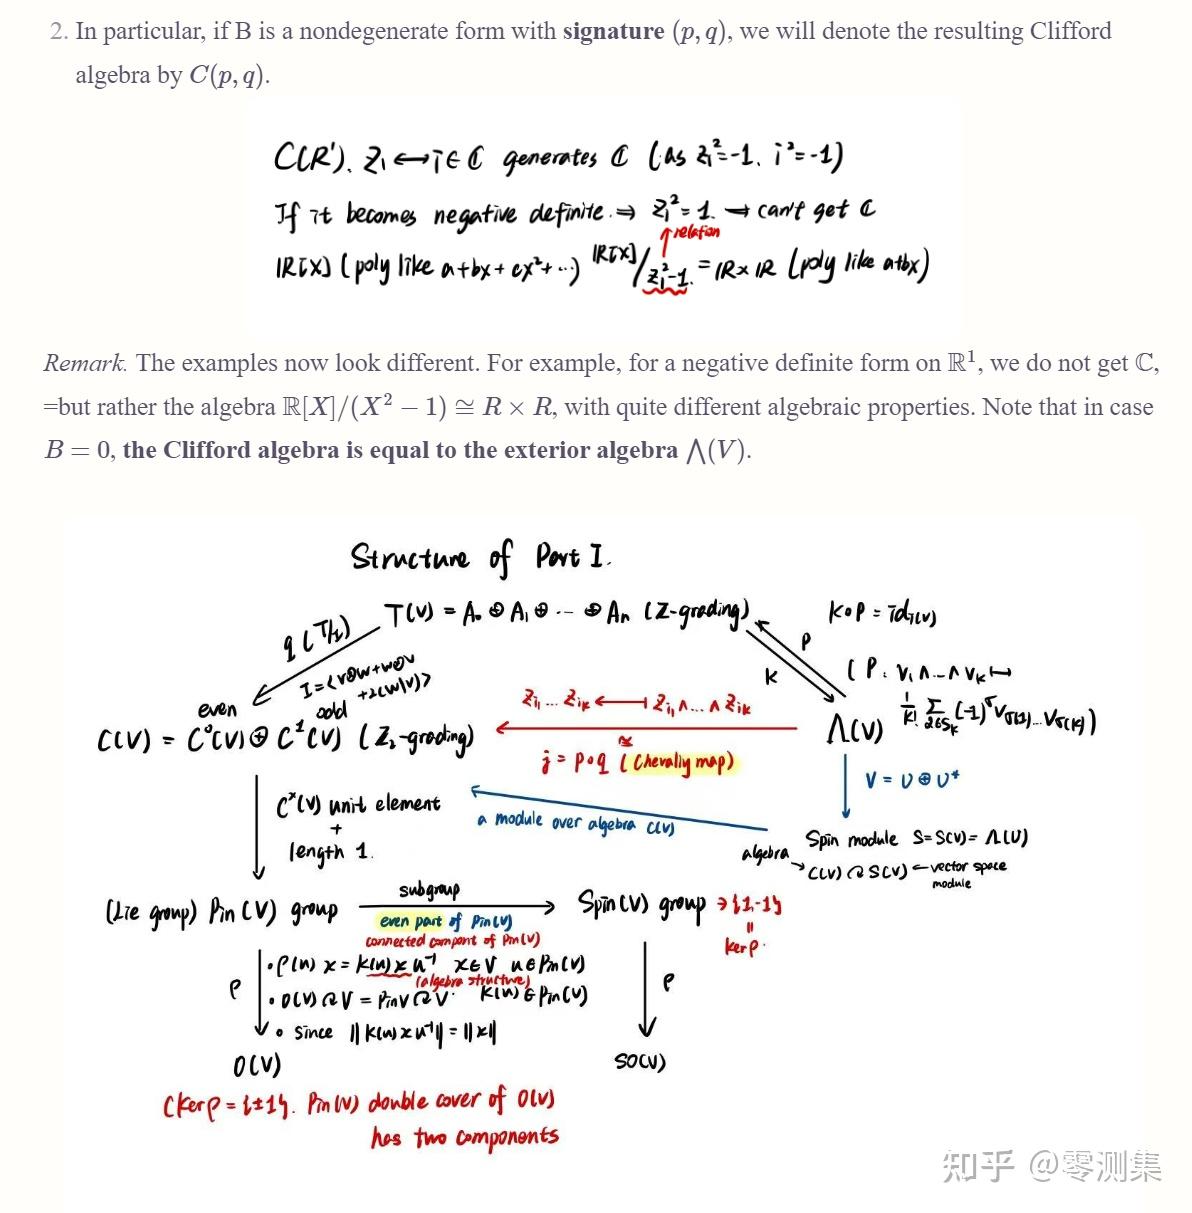 2. In particular, if B is a nondegenerate form with signature (p, q), we will denote the resulting Clifford
algebra by C(p, q).
C(R¹). Z₁ ↔ i ∈ ℂ generates ℂ (as Z₁²=-1, i²=-1)
If it becomes negative definite. ⇒ Z₁²=1. → can't get ℂ
↑ relation
ℝ[X] (poly like a+bx+cx²+...) ℝ[X]/Z₁²-1. = ℝ×ℝ (poly like a+bx)
Remark. The examples now look different. For example, for a negative definite form on ℝ¹, we do not get ℂ,
=but rather the algebra ℝ[X]/(X² − 1) ≅ R × R, with quite different algebraic properties. Note that in case
B = 0, the Clifford algebra is equal to the exterior algebra ⋀(V).
Structure of Part I.
T(V) = A₀ ⊕ A₁ ⊕ ... ⊕ Aₙ (Z-grading)
k∘p = id
q (T/I)
I=<v⊗w+w⊗v
+2(w|v)>
p
k
(p. v₁∧...∧vₖ ↦
1/k! Σ (-1)^σ v_σ(1)...v_σ(k))
even
odd
Z_i₁...Z_ik ⟷ Z_i₁∧...∧Z_ik
C(V) = C⁰(V) ⊕ C¹(V) (Z₂-grading)
≅
Λ(V)
j = p∘q (Chevally map)
V = U ⊕ U*
Cˣ(V) unit element
+
length 1.
a module over algebra C(V)
Spin module S=S(V)=Λ(U)
algebra → C(V) ↷ S(V) ← vector space
module
(Lie group) Pin(V) group
subgroup
even part of Pin(V)
connected compont of Pin(V)
Spin(V) group ∋ {1,-1}
=
ker ρ.
ρ
• ρ(u) x = k(u) x u⁻¹ x∈V u∈Pin(V)
(algebra structure)
• O(V) ↷ V = Pin V ↷ V. k(u) ∈ Pin(V)
• since ||k(u) x u⁻¹|| = ||x||
ρ
O(V)
SO(V)
(ker ρ = {±1}. Pin(V) double cover of O(V)
has two components
知乎 @零测集